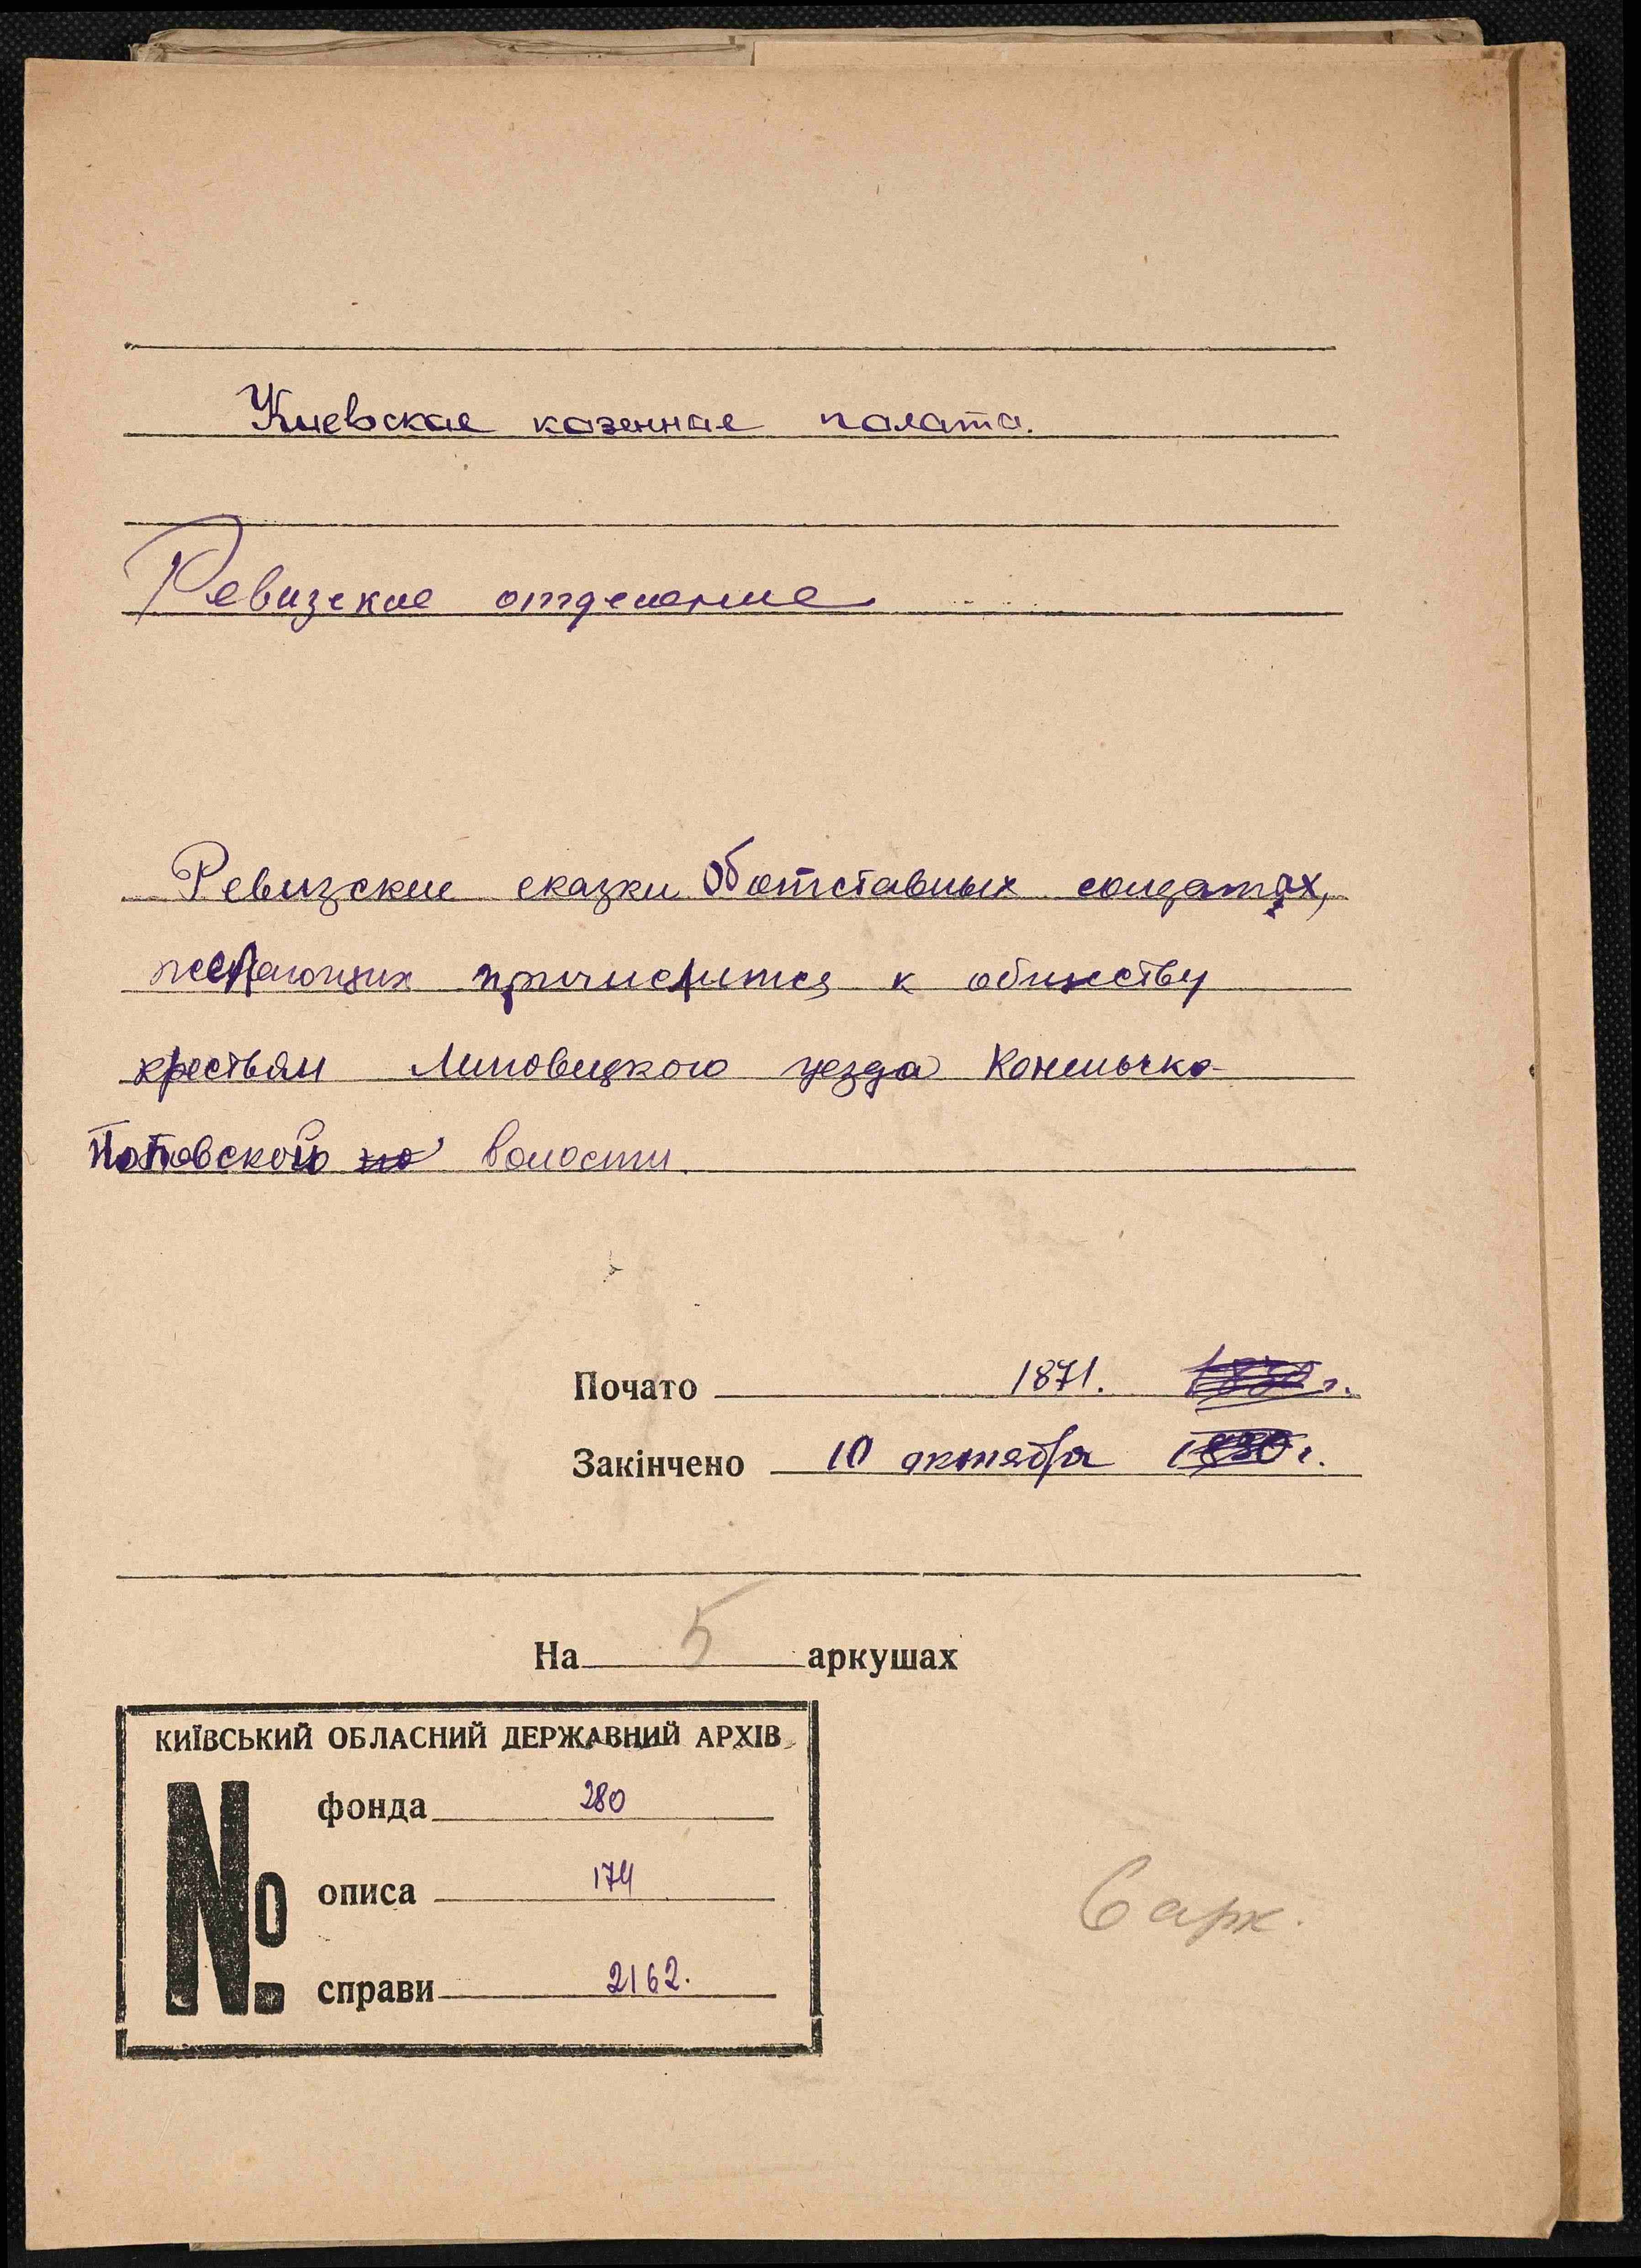 Киевская казенная палата.
Ревизское отделение
Ревизские сказки об отставных солдатах,
желающих причислится к обществу
крестьян Липовецкого уезда Конельско-
Поповской волости.
Почато 1871. г.
Закінчено 10 октября г.
На 5 аркушах
КИЇВСЬКИЙ ОБЛАСНИЙ ДЕРЖАВНИЙ АРХІВ
№
фонда 280
описа 174
справи 2162.
6 арк.